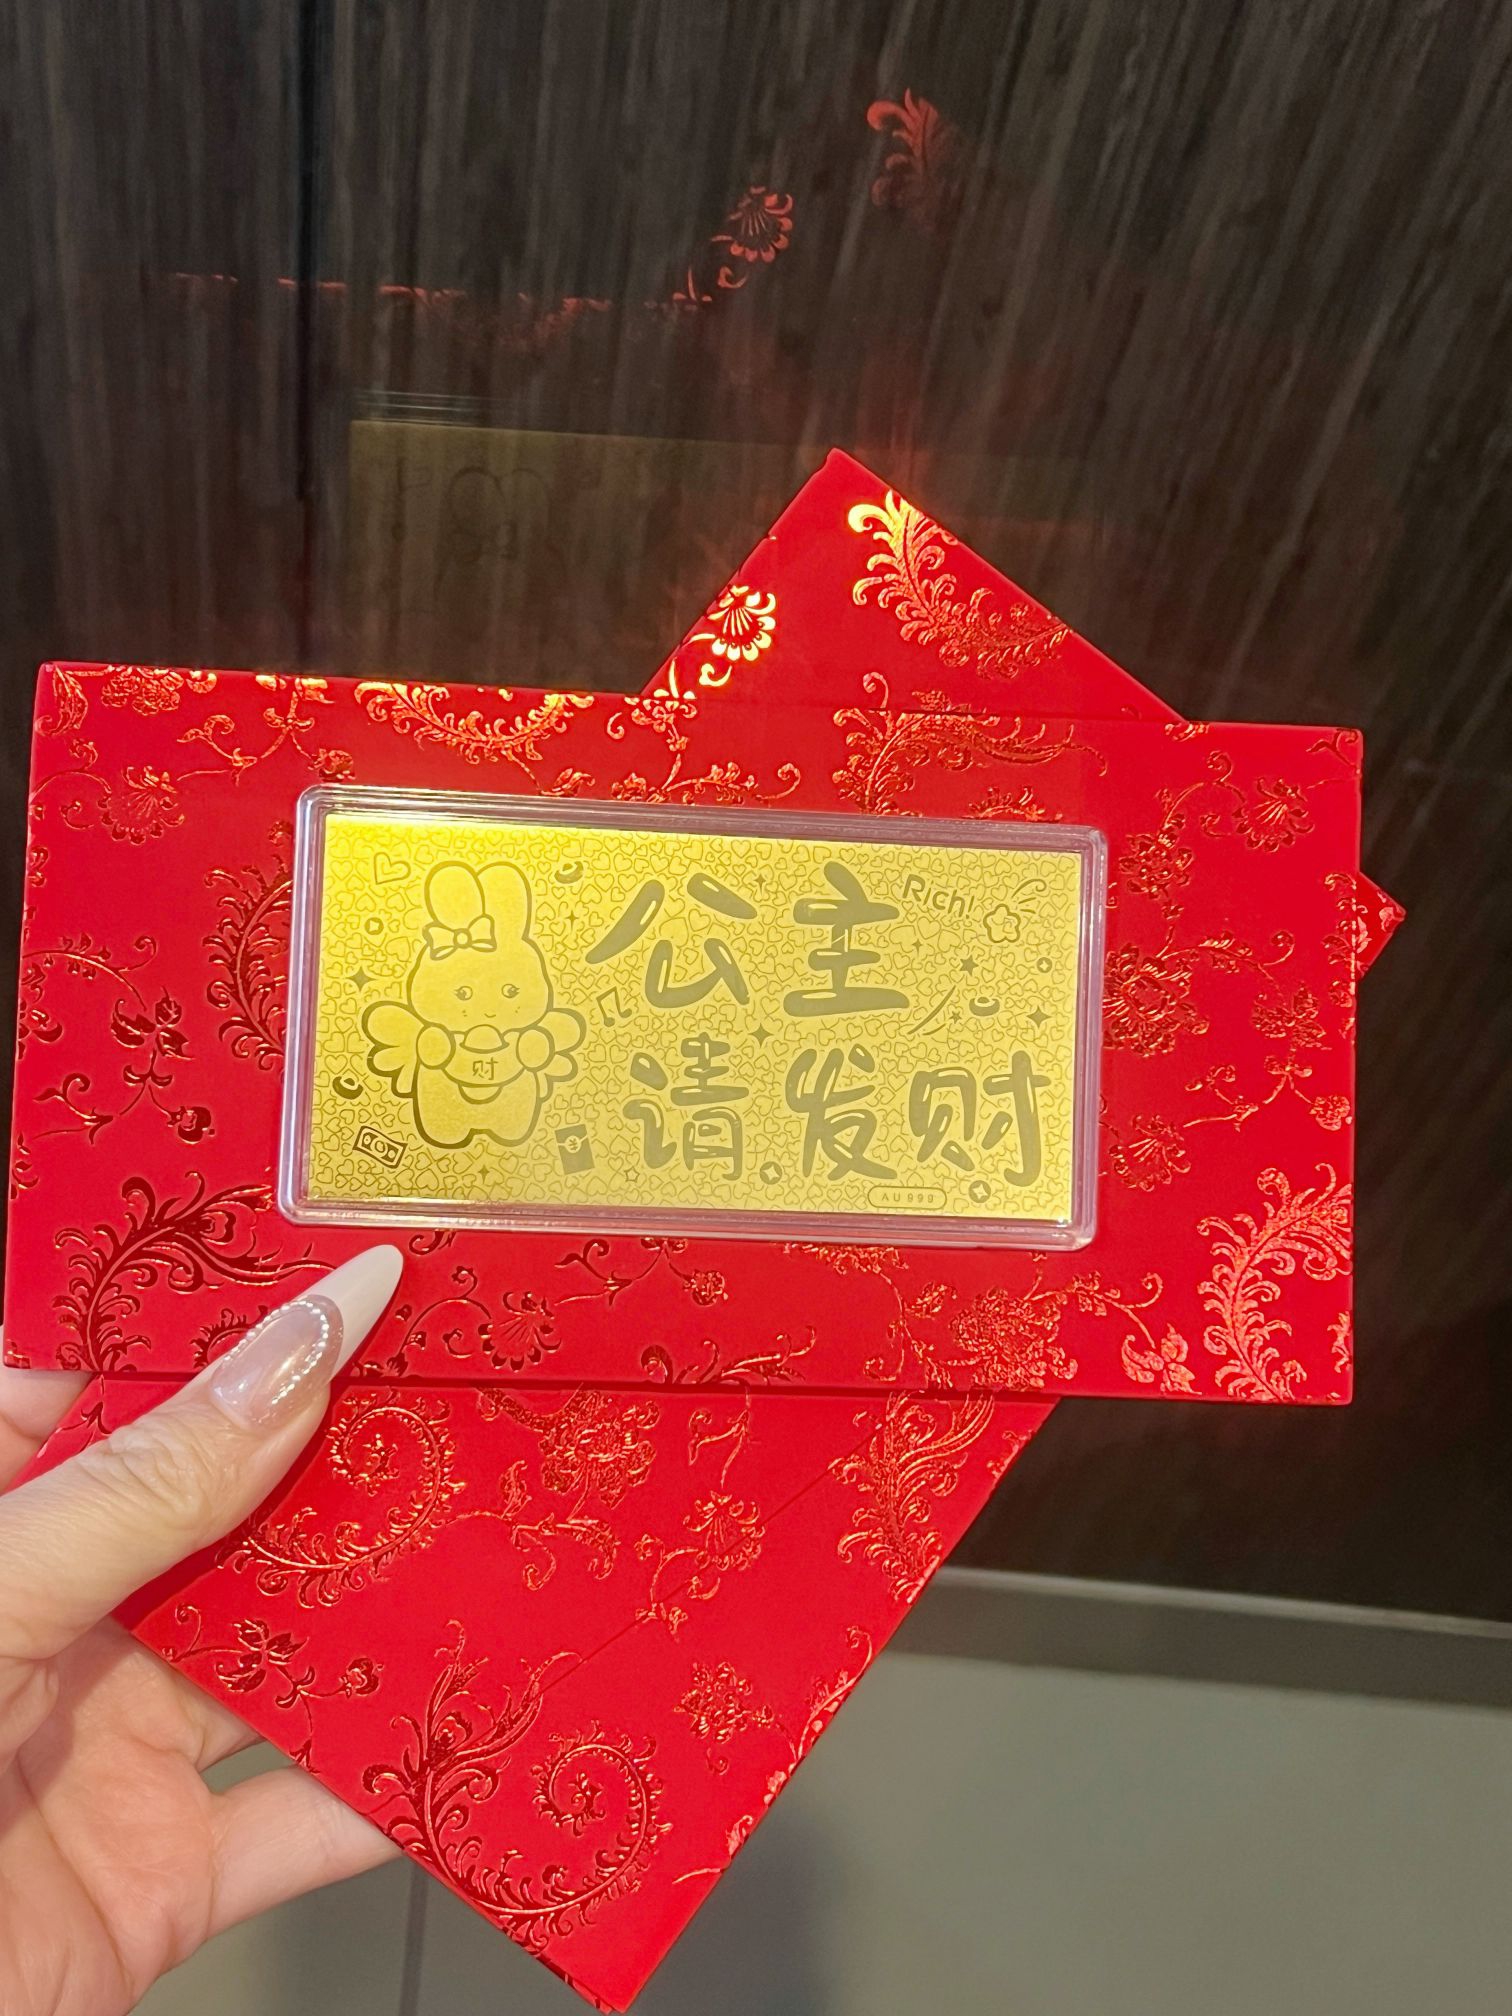 Rich!
公主
财
请发财
AU 999